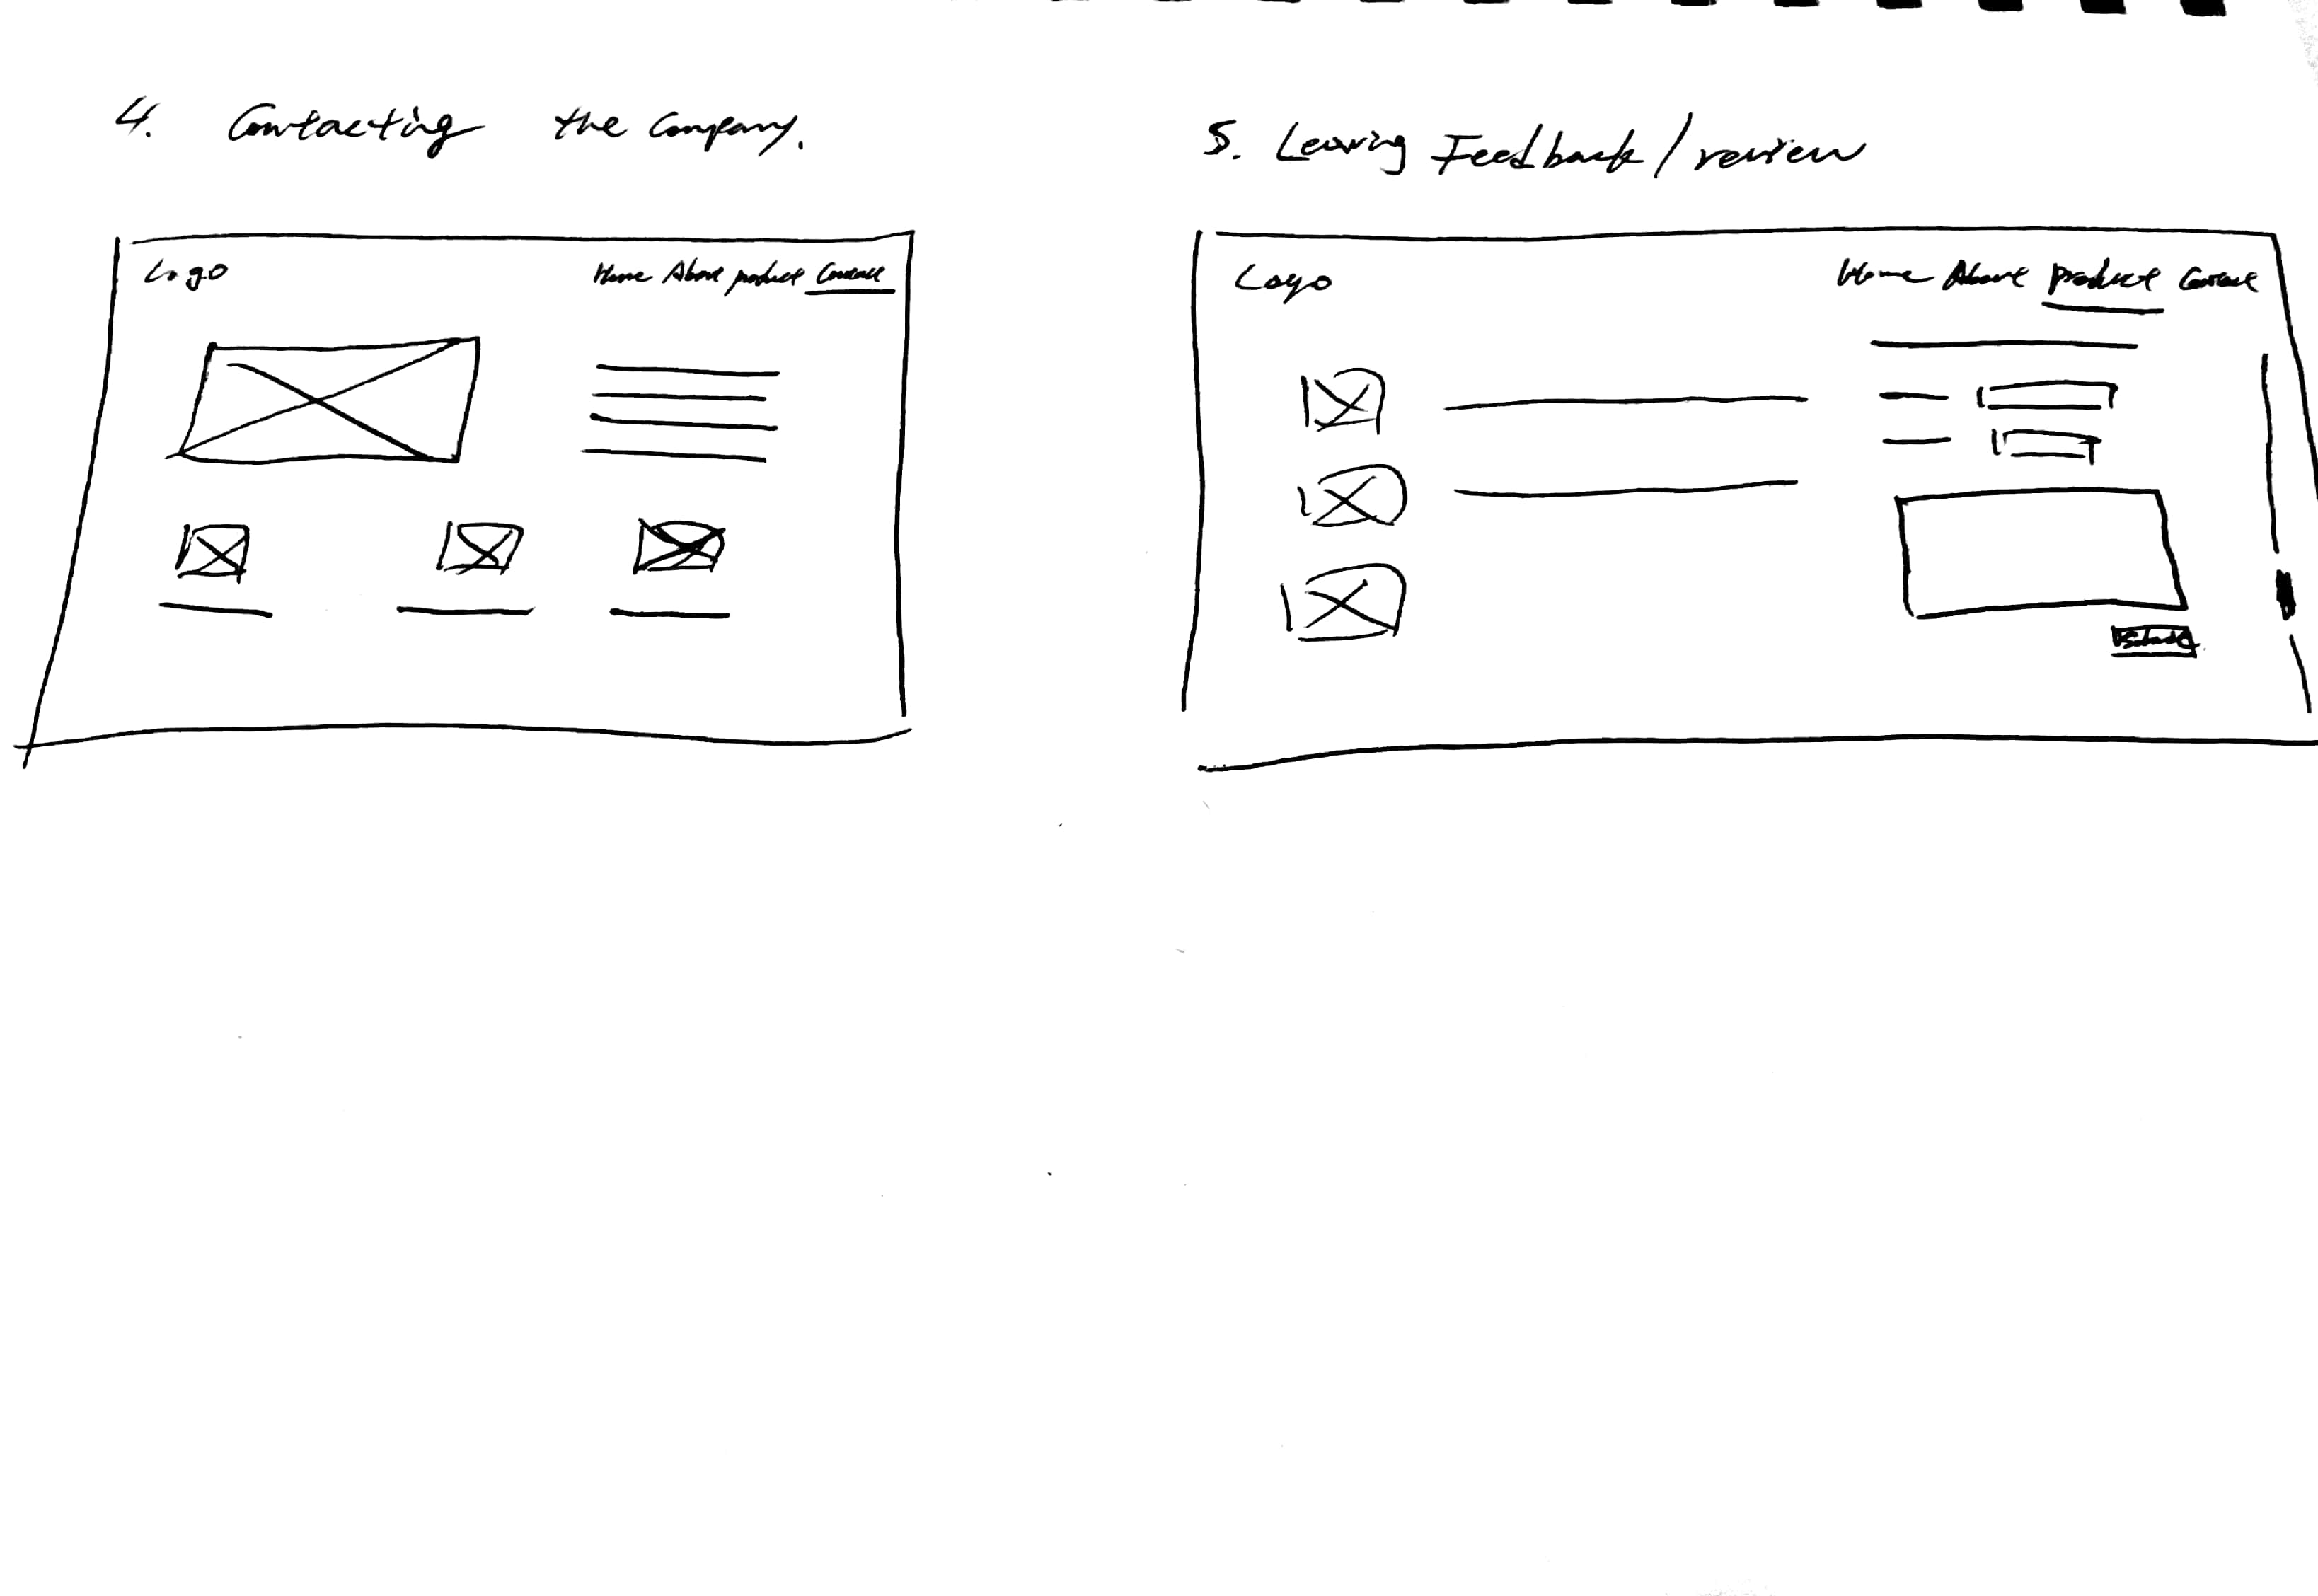 4. Contacting the Company.
Logo
Home About product Contact
5. Leaving Feedback/review
Logo
Home About product Contact
Submit